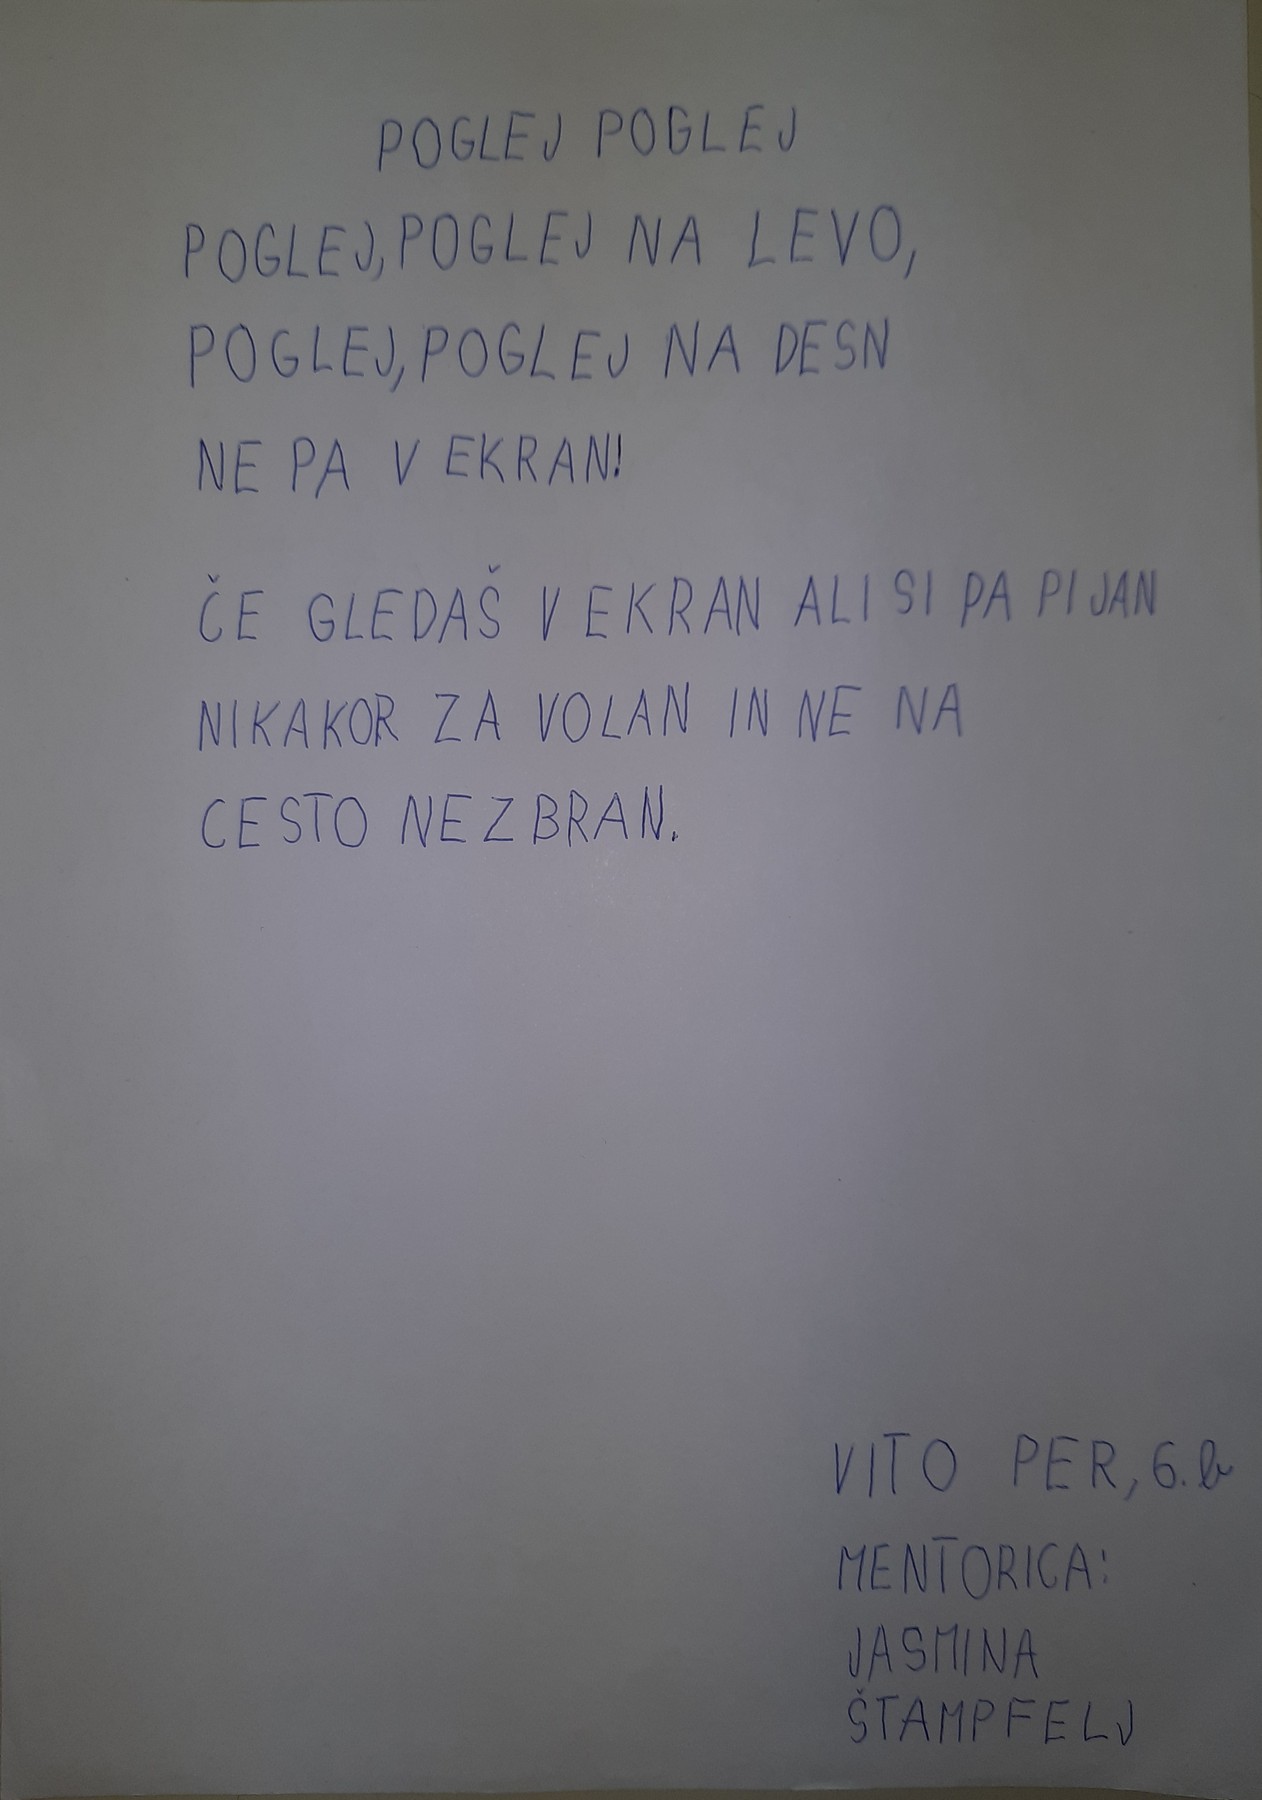 POGLEJ POGLEJ
POGLEJ, POGLEJ NA LEVO,
POGLEJ, POGLEJ NA DESN
NE PA V EKRAN!
ČE GLEDAŠ V EKRAN ALI SI PA PIJAN
NIKAKOR ZA VOLAN IN NE NA
CESTO NEZBRAN.
VITO PER, 6. b
MENTORICA:
JASMINA
ŠTAMPFELJ